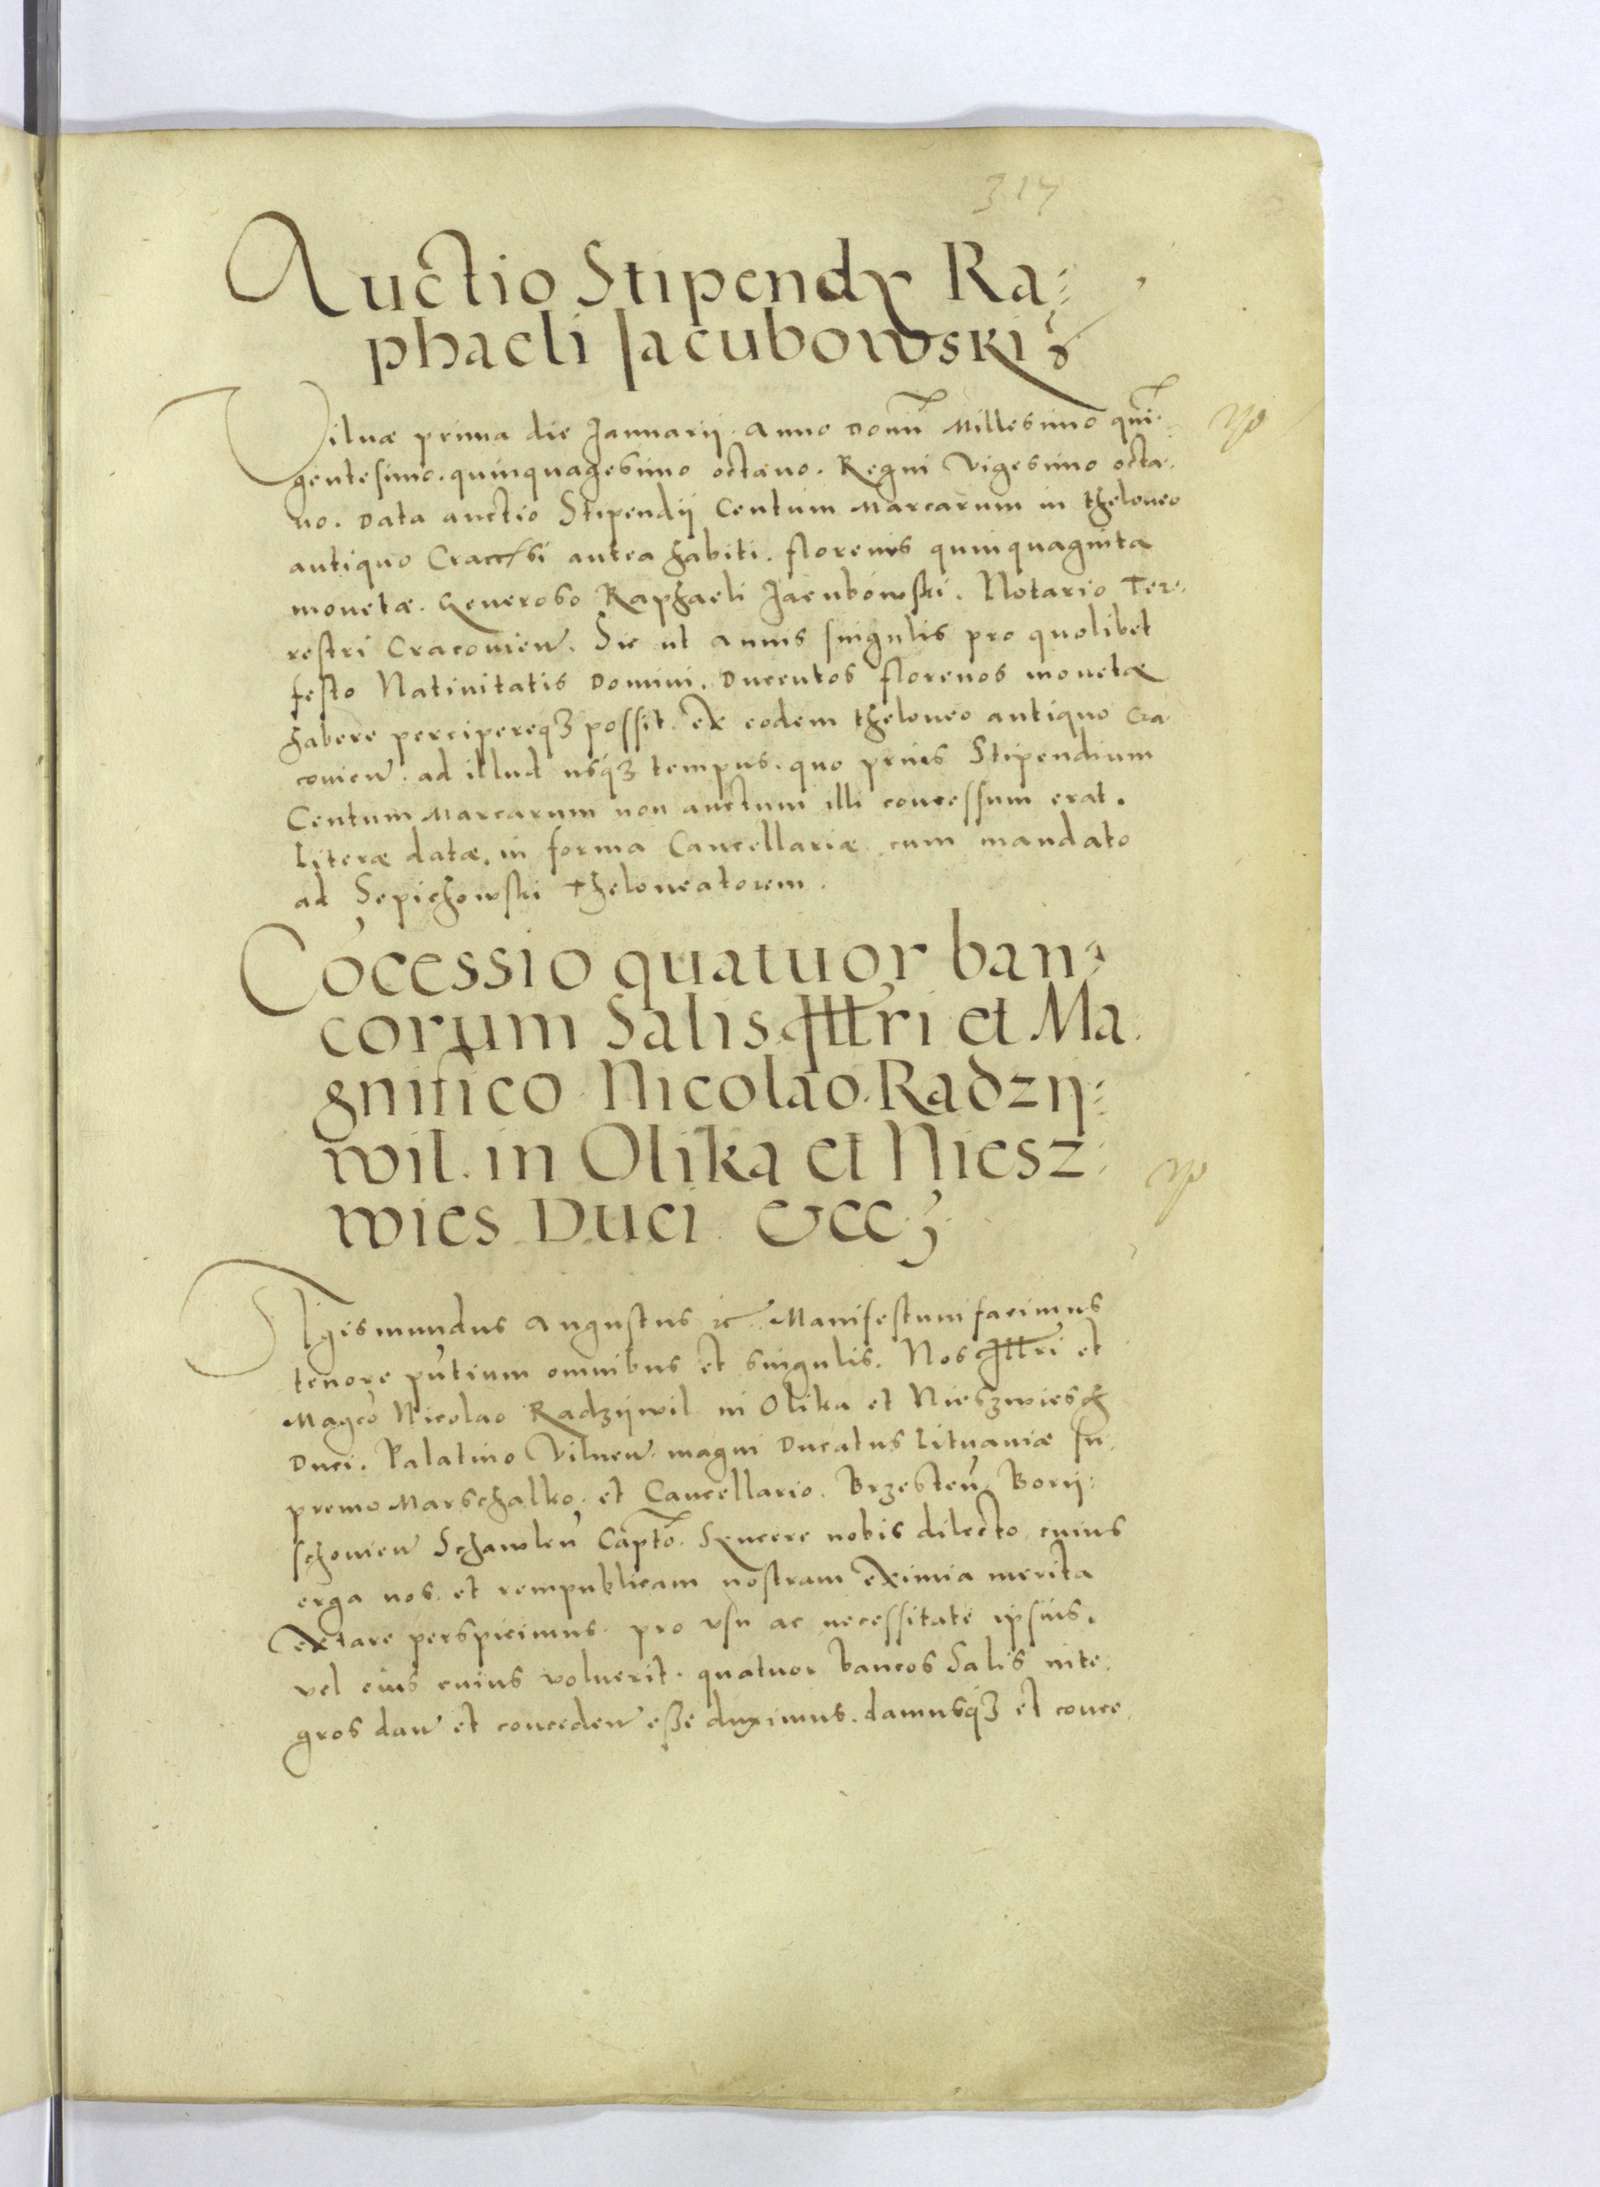 317
Auctio Stipendy Ra:
phaeli Iacubowski
Vilnæ prima die Januarij. Anno Domini Millesimo quin:
gentesimo. quinquagesimo octavo. Regni vigesimo octa.
vo. Data auctio Stipendij Centum Marcarum in theloneo
antiquo antea habiti. florenis quinquaginta
monetæ. Generoso Raphaeli Jacubowski. Notario Ter:
restri Cracovien. Sic ut annis singulis pro quolibet
festo Nativitatis Domini. Ducentos florenos monetæ
habere percipereqꝫ possit. ex eodem theloneo antiquo Cra.
covien. ad illud usqꝫ tempus. quo prius Stipendium
Centum Marcarum non auctum illi concessum erat.
Literæ datæ. in forma Cancellariæ cum mandato
ad Sepichowski Theloneatorem.
Cōcessio quatuor ban:
corum Salis. Illri et Ma.
gnifico Nicolao. Radzij:
wil. in Olika et Niesz:
wies Duci &cc
Sigismundus Augustus ꝛc. Manifestum facimus
tenore pn̄tium omnibus et singulis. Nos Illri et
Magco Nicolao Radzijwil in Olika et Nieszwiesch
Duci. Palatino Vilnen. magni Ducatus Lituaniæ su.
premo Marschalko. et Cancellario. Brzesten̄ Borij:
schovien Schawlen̄ Capto. Syncere nobis dilecto cuius
erga nos. et rempublicam nostram eximia merita
extare perspicimus. pro usu ac necessitate ipsius.
vel eius cuius voluerit. quatuor bancos Salis inte:
gros dan et conceden eße duximus. damusqꝫ et conce.